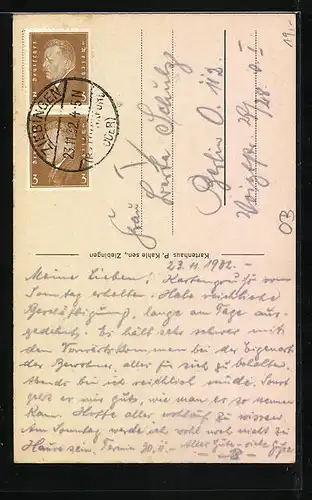 19.-
Deutsches Reich
3
ZIEBINGEN
23.11.32.4-5N
ODER)
Frau
Berta Schulz
Berlin O. 112
OB
Kartenhaus P. Kahle sen., Ziebingen
23.11.1932.-
Meine Lieben! Kartengruß vom
Sonntag erhalten. Habe reichliche
Beschäftigung, lange am Tage aus-
gedehnt. Es hält sehr schwer mit
dem Vorwärtskommen bei der Eigenart
der Bewohner, alles für sich zu behalten.
Abends bin ich reichlich müde. Sonst
geht es mir gut, wie man es so nennen
kann. Hoffe alles wohlauf zu wissen.
Am Sonntag werde ich wohl noch nicht zu
Hause sein. Termin 30.11.- Alles Gute - viele Grüße